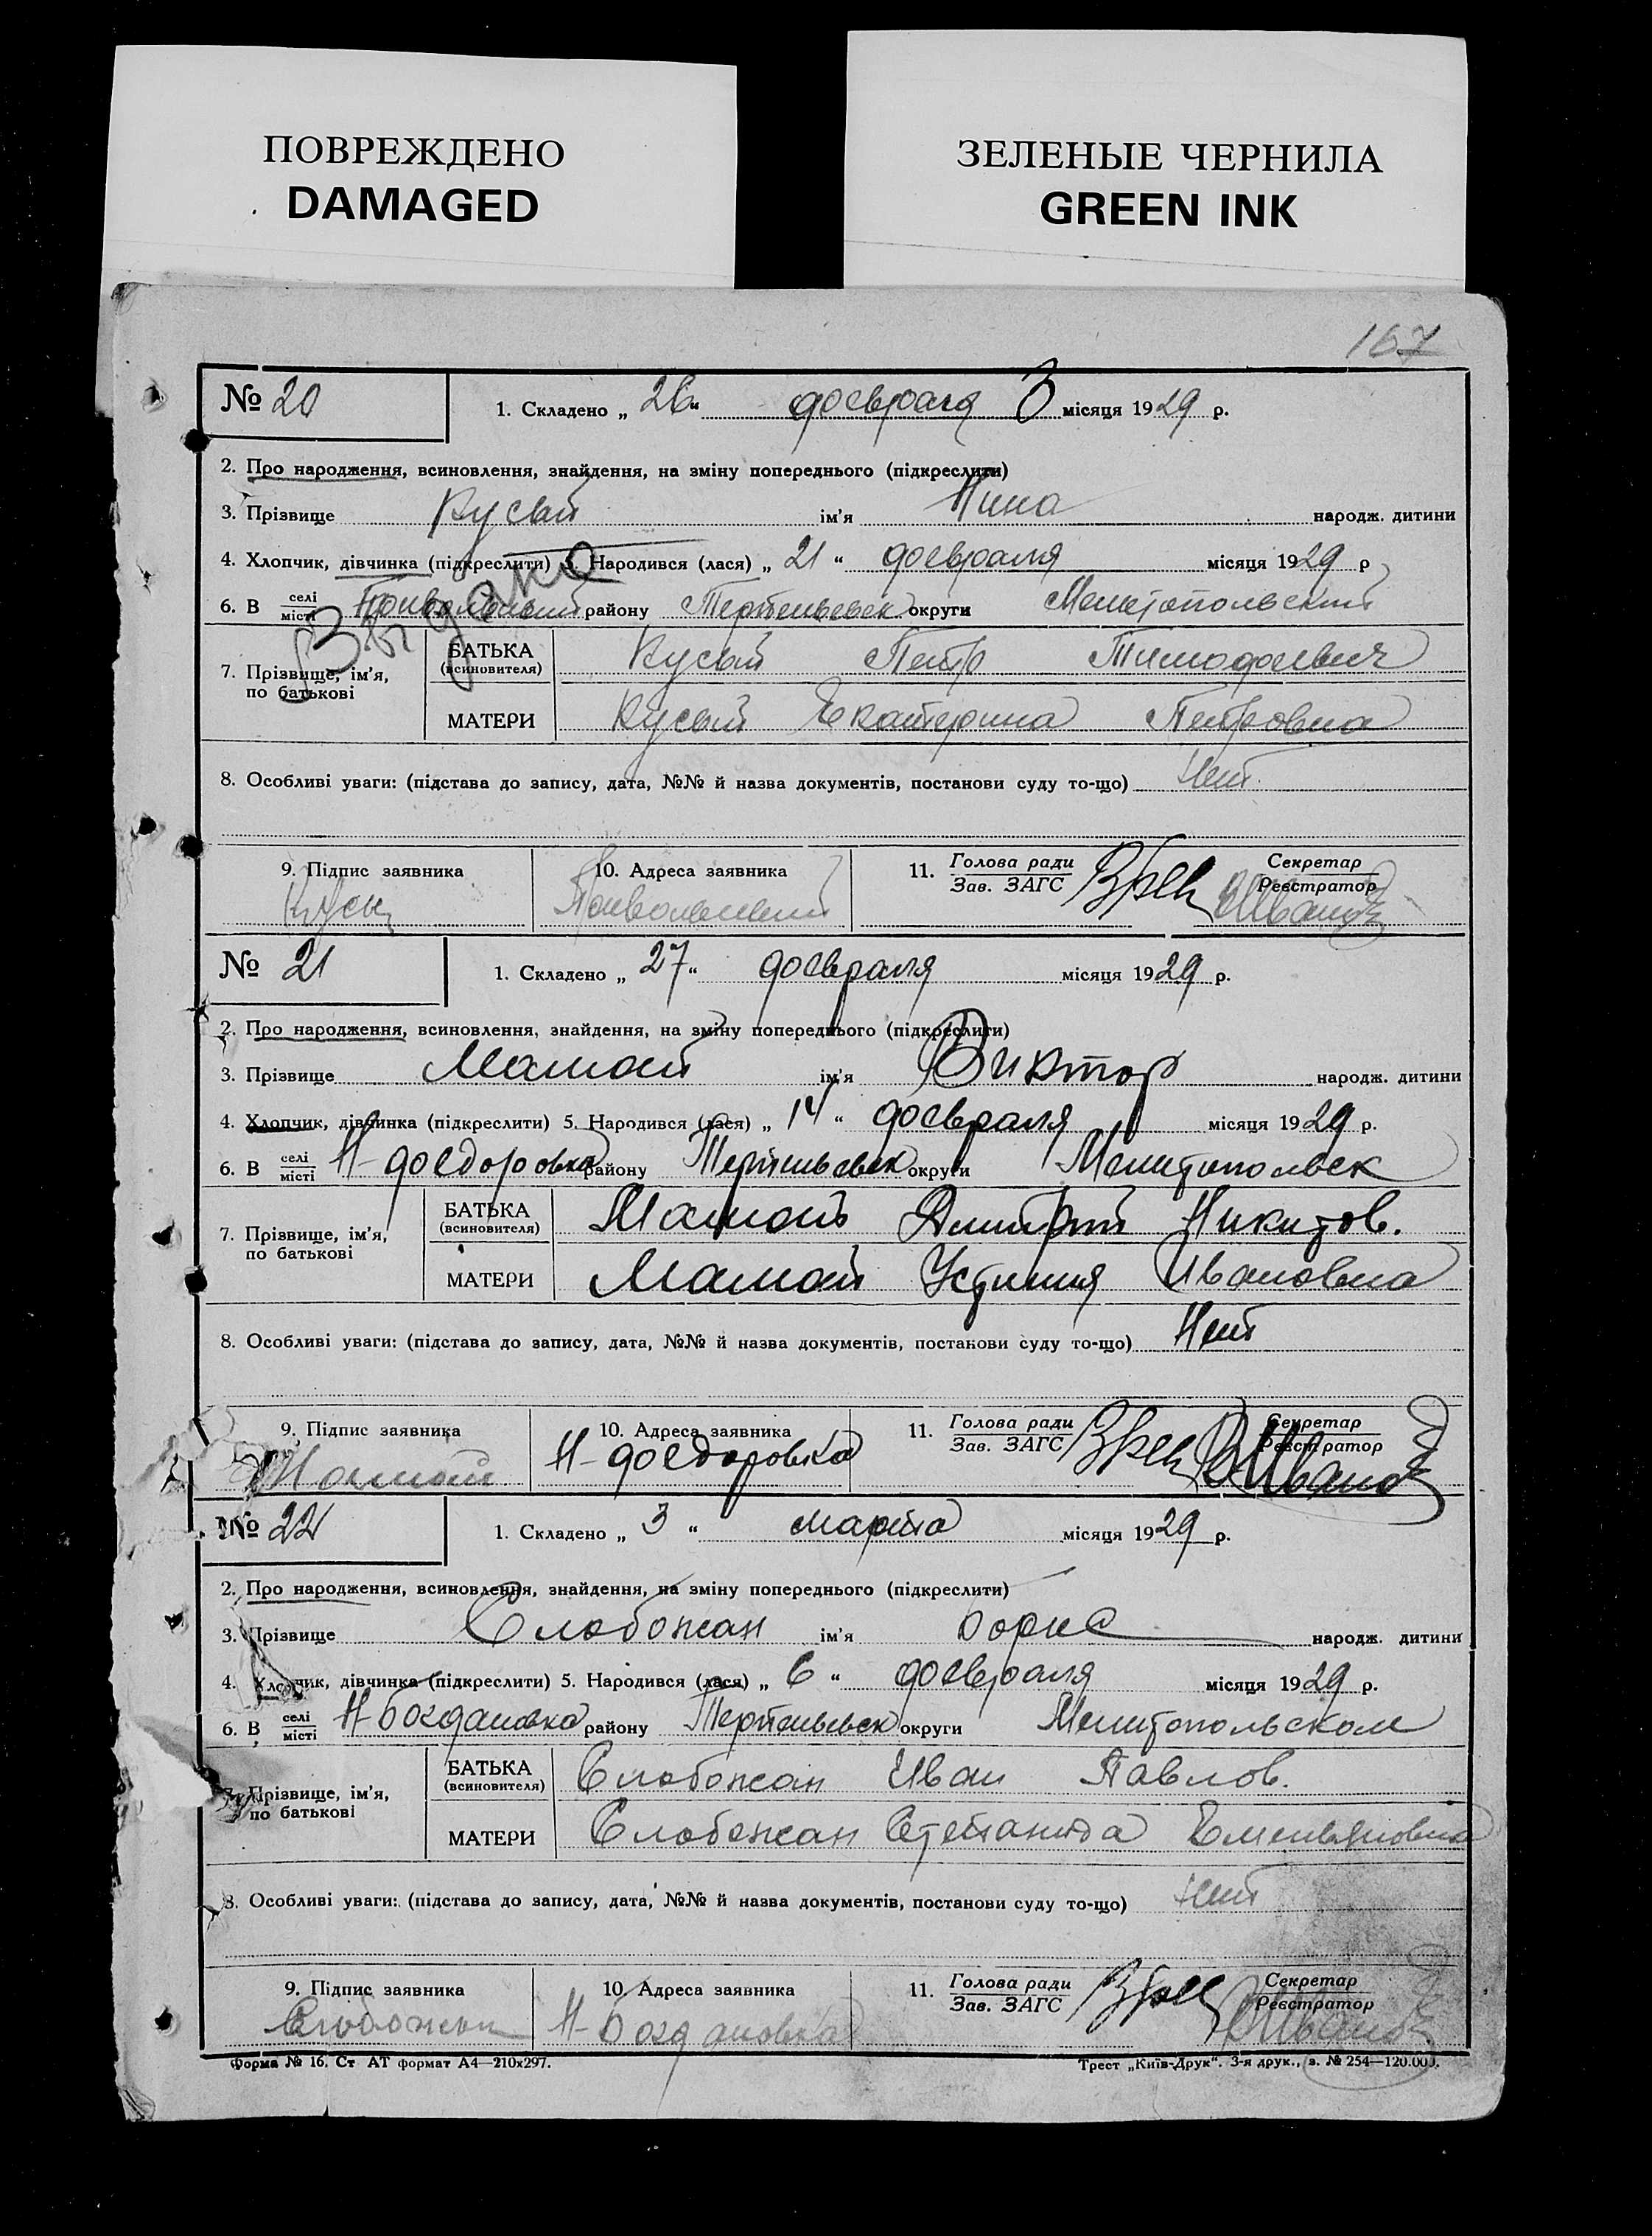 ПОВРЕЖДЕНО
DAMAGED
ЗЕЛЕНЫЕ ЧЕРНИЛА
GREEN INK
167
№ 20
1. Складено „ 26 “ февраля 3 місяця 1929 р.
2. Про народження, всиновлення, знайдення, на зміну попереднього (підкреслити)
3. Прізвище Кусый ім'я Нина народж. дитини
4. Хлопчик, дівчинка (підкреслити) 5. Народився (лася) „ 21 “ февраля місяця 1929 р
6. В селі місті району Терпеньевск округи Мелитопольский
Выдано
7. Прізвище, ім'я, по батькові
БАТЬКА (всиновителя) Кусый Петр Тимофеевич
МАТЕРИ Кусый Екатерина Петровна
8. Особливі уваги: (підстава до запису, дата, №№ й назва документів, постанови суду то-що) Нет
9. Підпис заявника
10. Адреса заявника
11. Голова ради Зав. ЗАГС Секретар Реєстратор
№ 21
1. Складено „ 27 “ февраля місяця 1929 р.
2. Про народження, всиновлення, знайдення, на зміну попереднього (підкреслити)
3. Прізвище Мамай ім'я Виктор народж. дитини
4. Хлопчик, дівчинка (підкреслити) 5. Народився (лася) „ 14 “ февраля місяця 1929 р.
6. В селі місті Н-Федоровка району Терпеньевск округи Мелитопольск
7. Прізвище, ім'я, по батькові
БАТЬКА (всиновителя) Мамай Дмитрий Никитов.
МАТЕРИ Мамай Устиния Ивановна
8. Особливі уваги: (підстава до запису, дата, №№ й назва документів, постанови суду то-що) Нет
9. Підпис заявника Мамай
10. Адреса заявника Н-Федоровка
11. Голова ради Зав. ЗАГС Секретар Реєстратор
№ 22
1. Складено „ 3 “ марта місяця 1929 р.
2. Про народження, всиновлення, знайдення, на зміну попереднього (підкреслити)
3. Прізвище Слобожан ім'я Борис народж. дитини
4. Хлопчик, дівчинка (підкреслити) 5. Народився (лася) „ 6 “ февраля місяця 1929 р.
6. В селі місті Н-Богдановка району Терпеньевск округи Мелитопольском
7. Прізвище, ім'я, по батькові
БАТЬКА (всиновителя) Слобожан Иван Павлов.
МАТЕРИ Слобожан Степанида Емельяновна
8. Особливі уваги: (підстава до запису, дата, №№ й назва документів, постанови суду то-що) Нет
9. Підпис заявника Слобожан
10. Адреса заявника Н-Богдановка
11. Голова ради Зав. ЗАГС Секретар Реєстратор
Форма № 16. Ст АТ формат А4—210х297.
Трест „Київ-Друк“. 3-я друк., з. № 254—120.000.